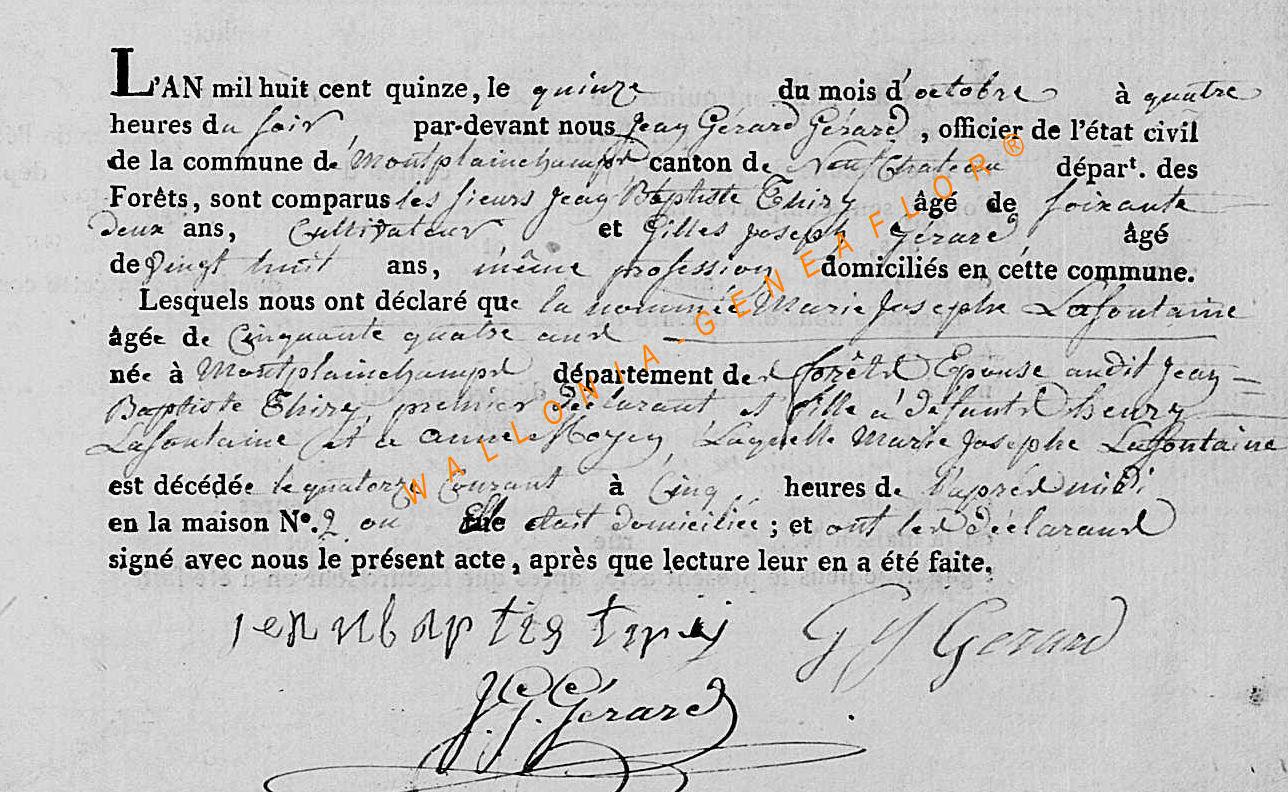 L'AN mil huit cent quinze, le quinze du mois d'octobre à quatre
heures du soir, par-devant nous Jean Gérard Gérard, officier de l'état civil
de la commune de Montplainchamps canton de Neufchateau départ. des
Forêts, sont comparus les sieurs Jean Baptiste Thiry âgé de soixante
deux ans, Cultivateur et Gilles Joseph Gérard, âgé
de vingt huit ans, même profession domiciliés en cette commune.
Lesquels nous ont déclaré que la nommée Marie Josephe Lafontaine
âgée de Cinquante quatre ans
née à Montplainchamps département des forêts Epouse audit Jean
Baptiste Thiry, premier déclarant et fille à défunts henry
Lafontaine et à anne Noyen, Laquelle Marie Josephe Lafontaine
est décédée le quatorze Courant à Cinq heures de l'après midi
en la maison N°. 2 ou Elle etait domiciliée ; et ont les déclarans
signé avec nous le présent acte, après que lecture leur en a été faite.
G J Gerard
J. G. Gérard
WALLONIA-GENEAFLOR®